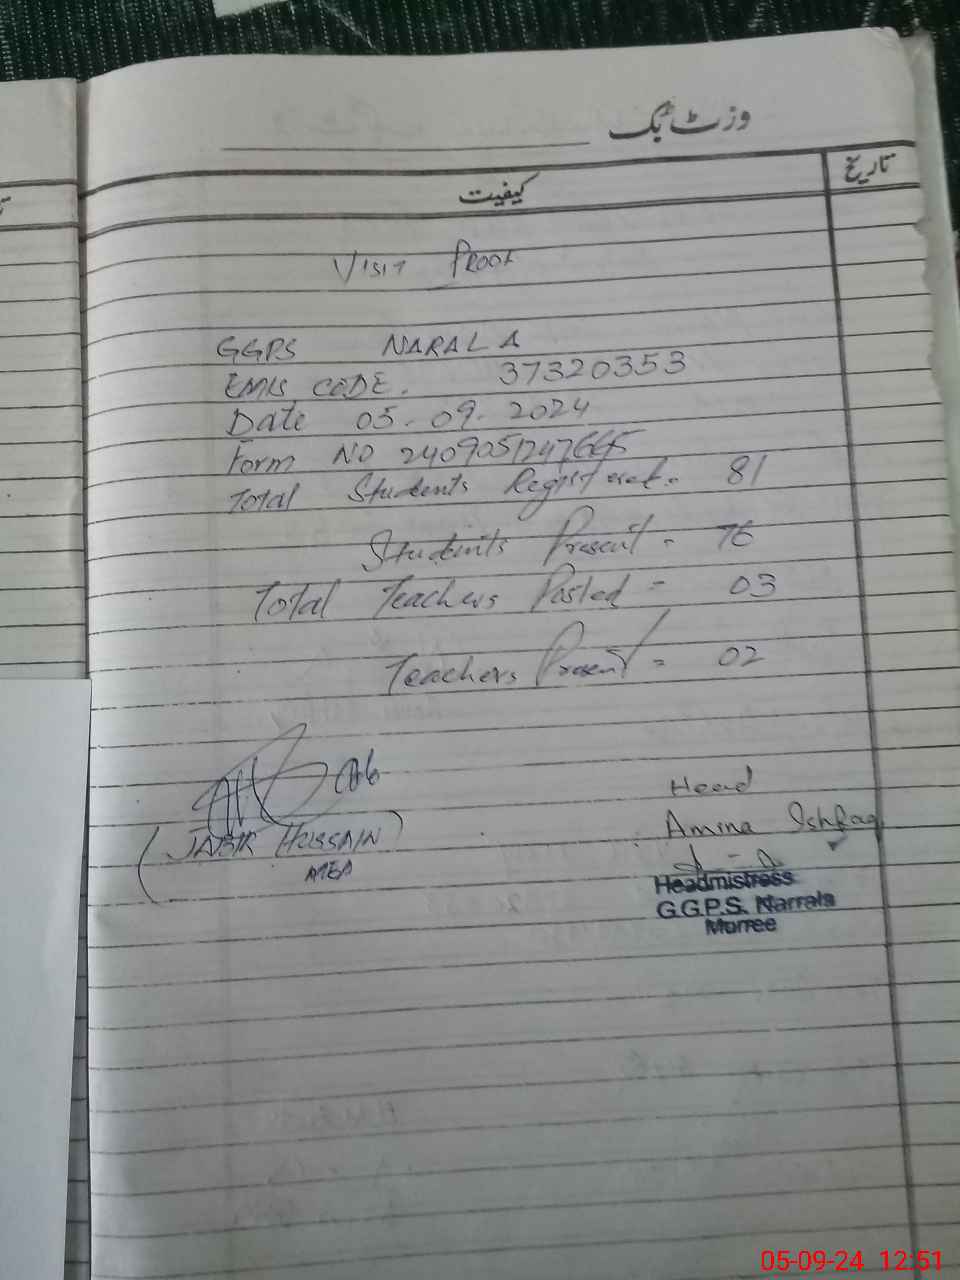 وزٹ بک
تاریخ
کیفیت
Visit Proof
GGPS NARALA
EMIS CODE. 37320353
Date 05.09.2024
Form NO 2409051247665
Total Students Registered. 81
Students Present - 76
Total Teachers Posted = 03
Teachers Present = 02
(JABIR HUSSAIN)
MEA
Head
Amina Ishfaq
Headmistress
G.G.P.S. Narrala
Murree
05-09-24 12:51